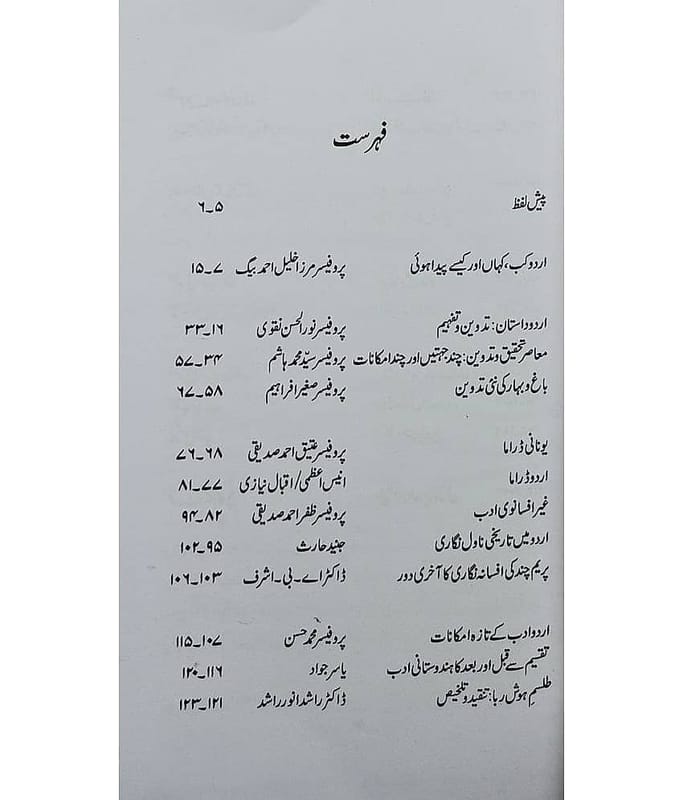 فہرست
پیش لفظ ۵۔۶
اردو کب، کہاں اور کیسے پیدا ہوئی پروفیسر مرزا خلیل احمد بیگ ۷۔۱۵
اردو داستان: تدوین و تفہیم پروفیسر نور الحسن نقوی ۱۶۔۳۳
معاصر تحقیق و تدوین: چند جہتیں اور چند امکانات پروفیسر سیّد محمد ہاشم ۳۴۔۵۷
باغ و بہار کی نئی تدوین پروفیسر صغیر افراہیم ۵۸۔۶۷
یونانی ڈراما پروفیسر عتیق احمد صدیقی ۶۸۔۷۶
اردو ڈراما انیس اعظمی/اقبال نیازی ۷۷۔۸۱
غیر افسانوی ادب پروفیسر ظفر احمد صدیقی ۸۲۔۹۴
اردو میں تاریخی ناول نگاری جنید حارث ۹۵۔۱۰۲
پریم چند کی افسانہ نگاری کا آخری دور ڈاکٹر اے۔بی۔اشرف ۱۰۳۔۱۰۶
اردو ادب کے تازہ امکانات پروفیسر محمد حسن ۱۰۷۔۱۱۵
تقسیم سے قبل اور بعد کا ہندوستانی ادب یاسر جواد ۱۱۶۔۱۲۰
طلسمِ ہوش ربا: تنقید و تلخیص ڈاکٹر راشد انور راشد ۱۲۱۔۱۲۳